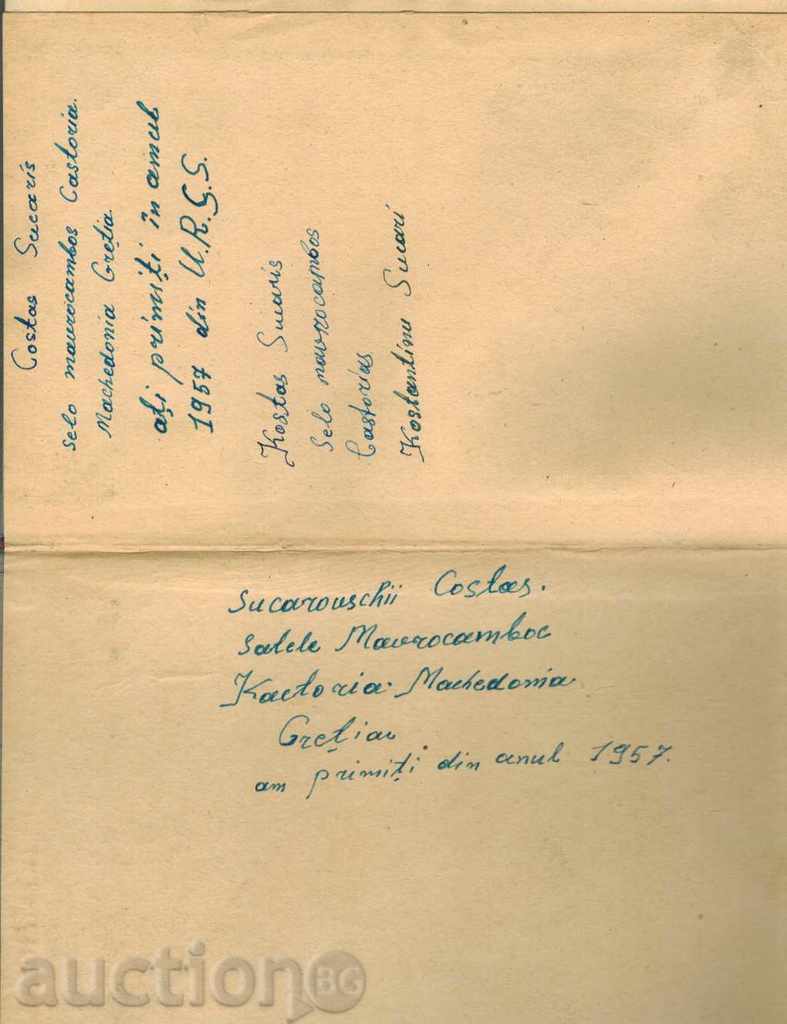 Costas Sucaris
selo maurocambos Castoria.
Machedonia Greția
ați primiți în amul
1957 din U.R.S.S.
Kostas Sucaris
selo navrocambos
Castorias
Kostantinu Sucari
Sucarouschii Costas.
satele Mavrocamboc
Kactoria. Machedonia
Greția
am primiți din anul 1957.
auctionBG